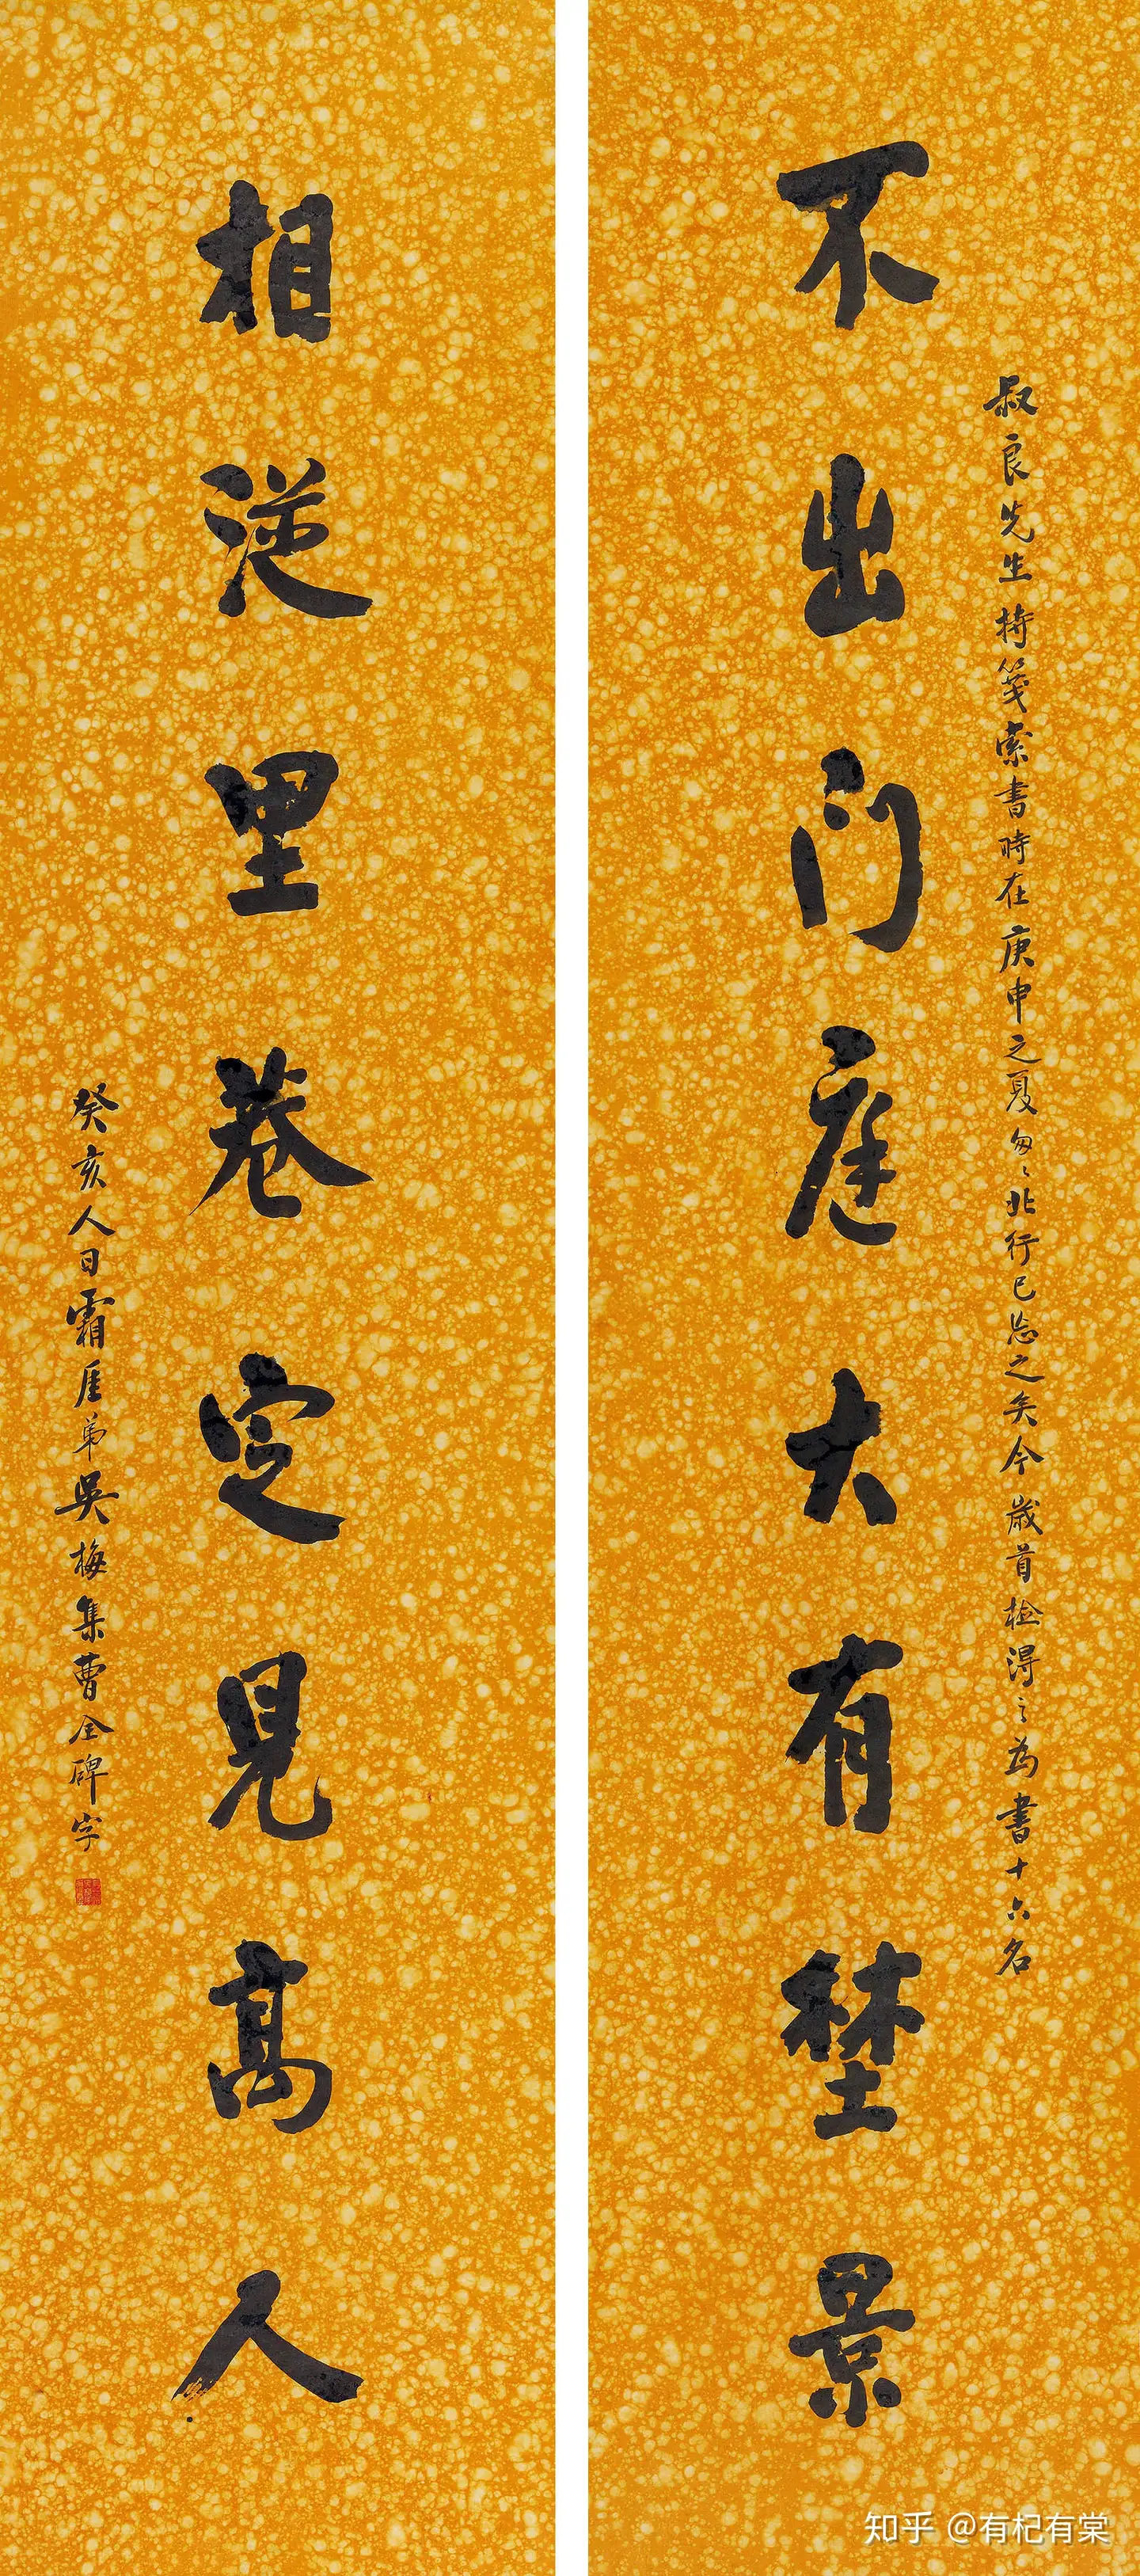 叔良先生持箋索書時在庚申之夏匆匆北行已忘之矣今歲首檢得之為書十六名
不出門庭大有埜景
相從里巷定見高人
癸亥人日霜厓弟吳梅集曹全碑字
知乎 @有杞有棠